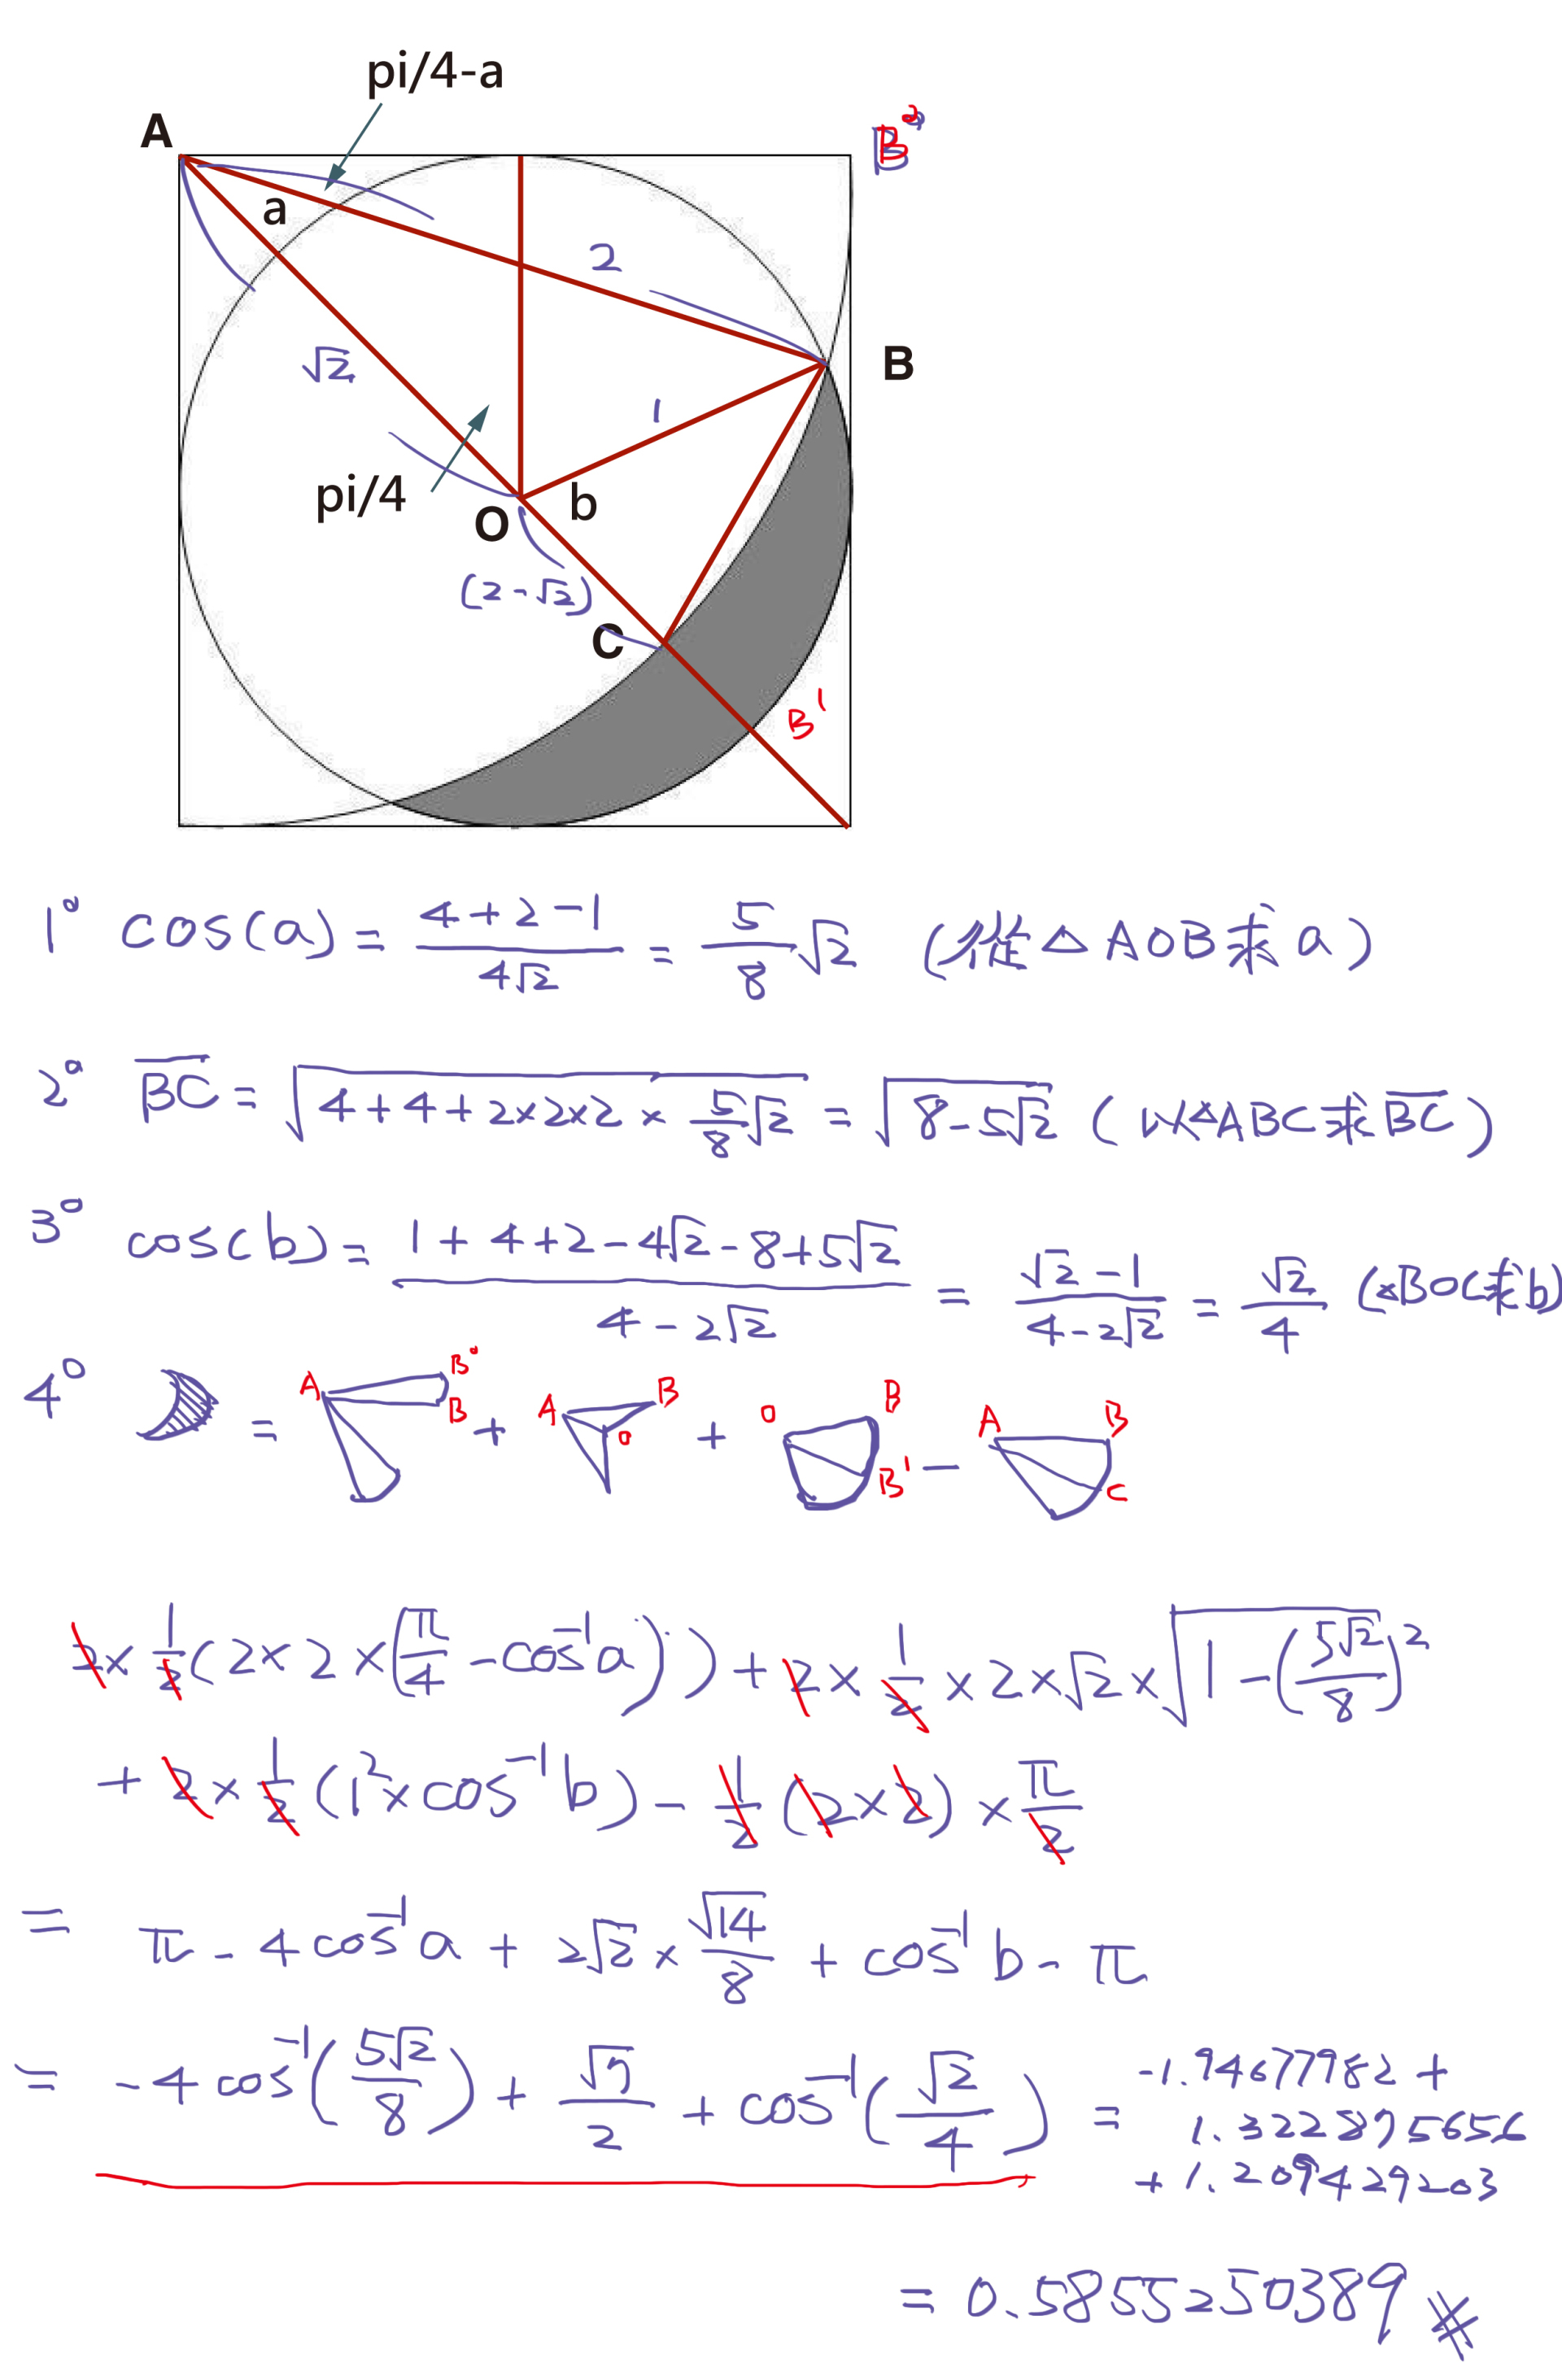 pi/4-a
A
B°
a
2
B
√2
1
pi/4
O
b
(2-√2)
C
B'
1° cos(a) = (4+2-1)/(4√2) = 5/8 √2 (從△AOB求a)
2° B̅C̅ = √(4+4+2×2×2×5/8√2) = √(8-5√2) (從△ABC求B̅C̅)
3° cos(b) = (1+4+2-4√2-8+5√2)/(4-2√2) = (√2-1)/(4-2√2) = √2/4 (△BOC求b)
4° = A B° B + A B O + O B B' - A B C
2×1/2(2×2×(π/4-cos⁻¹a)) + 2×1/2×2×√2×√(1-(5√2/8)²)
+ 2×1/2(1²×cos⁻¹b) - 1/2(2×2)×π/2
= π-4cos⁻¹a + 2√2×√14/8 + cos⁻¹b-π
= -4cos⁻¹(5√2/8) + √7/2 + cos⁻¹(√2/4) = -1.94677982+
1.322895656
+1.209429203
= 0.5855250389